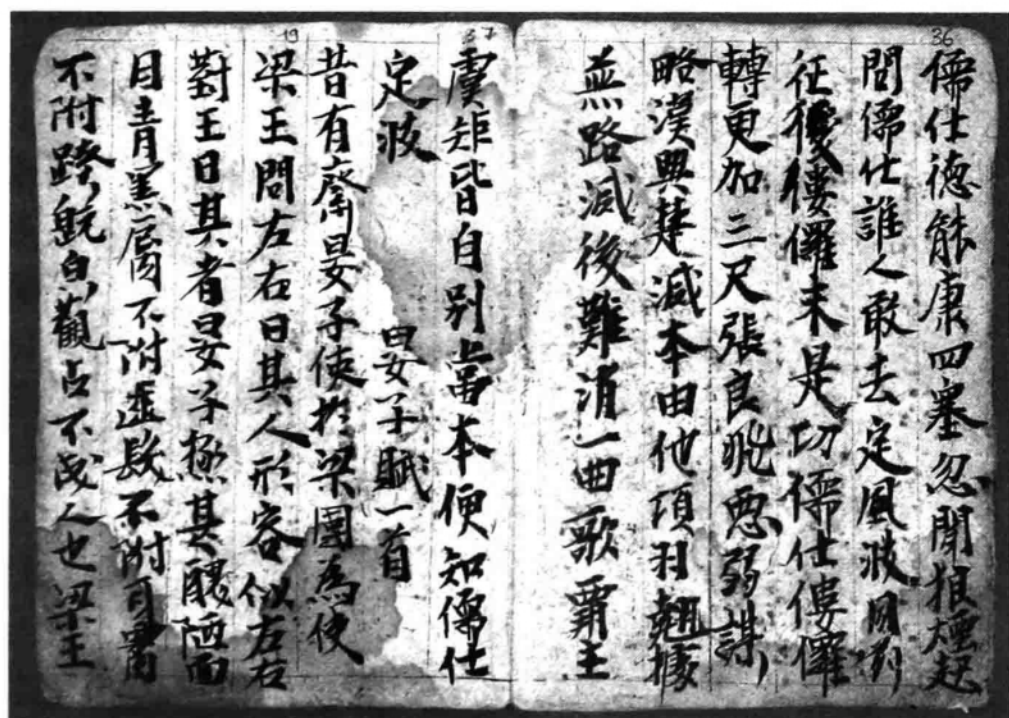 36
儒仕德能康四塞忽聞狼煙起
問儒仕誰人敢去定風波
征後僂儸未是功儒仕僂儸
轉更加三尺張良飛惡弱謀
略漢興楚滅本由他項羽翹據
無路滅後難消一曲歌霸王
37
虞矩皆自别當本便知儒仕
定波
晏子賦一首
19
昔有齊晏子使於梁國為使
梁王問左右曰其人形容似左右
對王曰其者晏子極其醜陋面
目青黑唇不附齒髮不附耳
不附踝既自觀占不成人也梁王